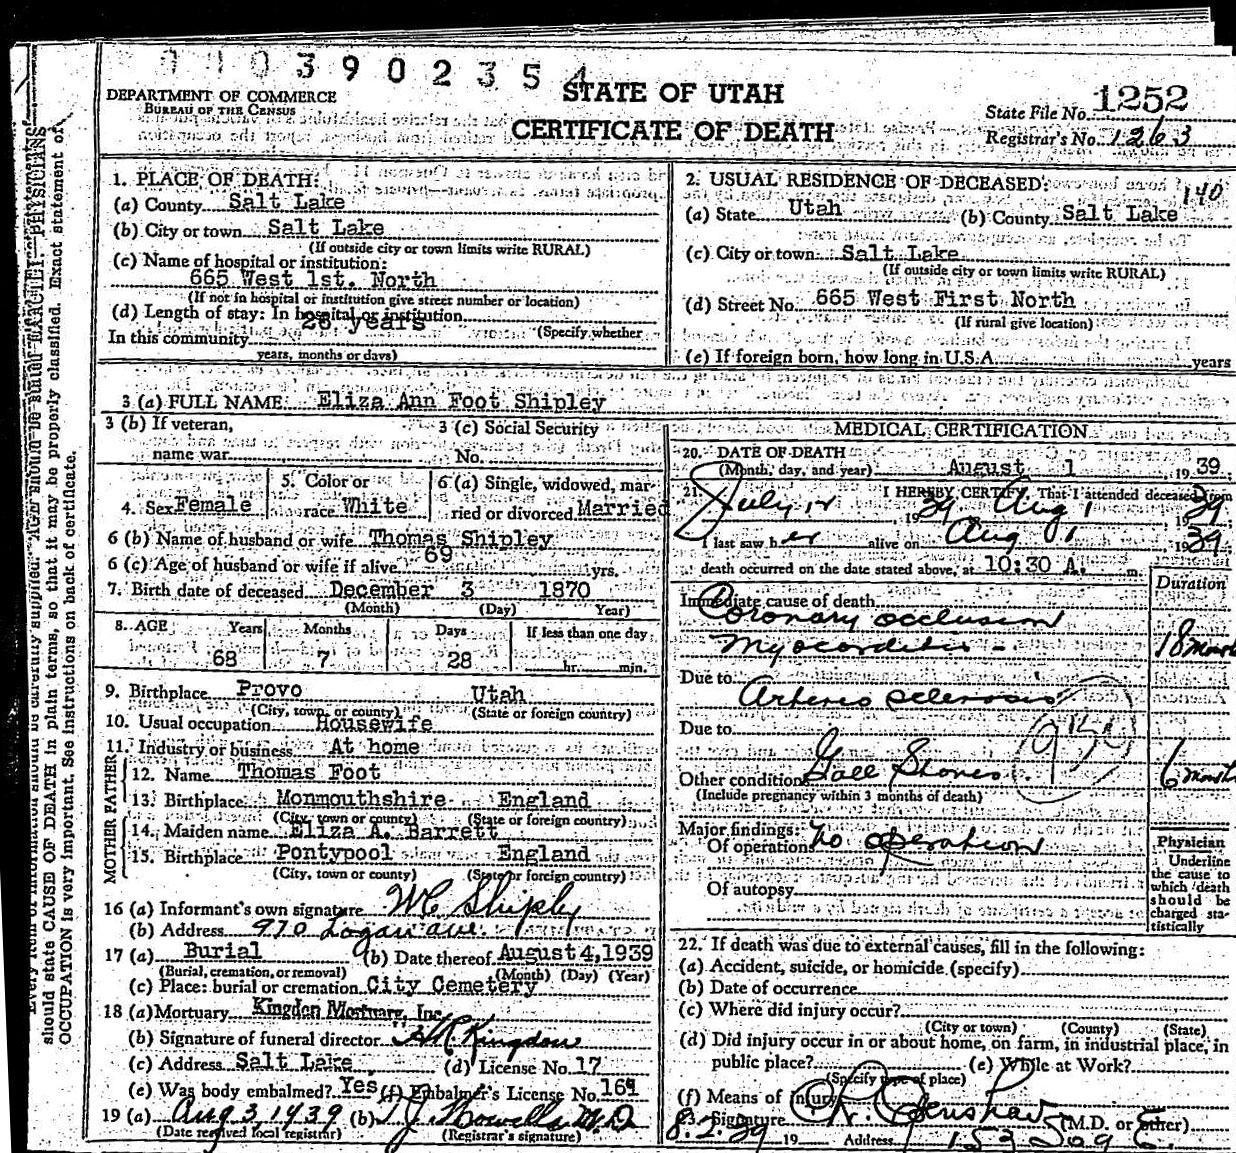 390235
DEPARTMENT OF COMMERCE
BUREAU OF THE CENSUS
STATE OF UTAH
CERTIFICATE OF DEATH
State File No. 1252
Registrar's No. 1263
1. PLACE OF DEATH:
(a) County Salt Lake
(b) City or town Salt Lake
(If outside city or town limits write RURAL)
(c) Name of hospital or institution:
665 West 1st. North
(If not in hospital or institution give street number or location)
(d) Length of stay: In hospital or institution
(Specify whether
In this community 26 years
years, months or days)
2. USUAL RESIDENCE OF DECEASED: 140
(a) State Utah (b) County Salt Lake
(c) City or town Salt Lake
(If outside city or town limits write RURAL)
(d) Street No. 665 West First North
(If rural give location)
(e) If foreign born, how long in U.S.A. years
3 (a) FULL NAME: Eliza Ann Foot Shipley
3 (b) If veteran, name war
3 (c) Social Security No.
4. Sex Female 5. Color or race White 6 (a) Single, widowed, married or divorced Married
6 (b) Name of husband or wife Thomas Shipley
6 (c) Age of husband or wife if alive 69 yrs.
7. Birth date of deceased December 3 1870
(Month) (Day) Year)
8. AGE Years Months Days If less than one day
68 7 28 hr. min.
9. Birthplace Provo Utah
(City, town, or county) (State or foreign country)
10. Usual occupation Housewife
11. Industry or business At home
FATHER
12. Name Thomas Foot
13. Birthplace Monmouthshire England
(City, town or county) (State or foreign country)
MOTHER
14. Maiden name Eliza A. Barrett
15. Birthplace Pontypool England
(City, town or county) (State or foreign country)
16 (a) Informant's own signature W C Shipley
(b) Address 970 Logan ave.
17 (a) Burial (b) Date thereof August 4, 1939
(Burial, cremation, or removal) (Month) (Day) (Year)
(c) Place: burial or cremation City Cemetery
18 (a) Mortuary Kingdon Mortuary, Inc.
(b) Signature of funeral director Kingdon
(c) Address Salt Lake (d) License No. 17
(e) Was body embalmed? Yes (f) Embalmer's License No. 169
19 (a) Aug 3, 1939 (b) T J Howells M.D.
(Date received local registrar) (Registrar's signature)
MEDICAL CERTIFICATION
20. DATE OF DEATH
(Month, day, and year) August 1, 1939
21. I HEREBY CERTIFY, That I attended deceased from
July 12, 1939 Aug 1, 1939
I last saw her alive on Aug 1 1939
death occurred on the date stated above, at 10:30 A. m.
Duration
Immediate cause of death
Coronary occlusion
Myocarditis - 18 months
Due to
Arterio sclerosis
Due to
Other conditions Gall Stones 6 months
(Include pregnancy within 3 months of death)
Major findings:
Of operations no operation
Of autopsy
Physician
Underline
the cause to
which death
should be
charged sta-
tistically
22. If death was due to external causes, fill in the following:
(a) Accident, suicide, or homicide (specify)
(b) Date of occurrence
(c) Where did injury occur?
(City or town) (County) (State)
(d) Did injury occur in or about home, on farm, in industrial place, in
public place? (e) While at Work?
(Specify type of place)
(f) Means of injury
23. Signature Openshaw (M.D. or other)
8.2.39 19 Address 153 So 9 E.
should state CAUSE OF DEATH in plain terms, so that it may be properly classified. Exact statement of
OCCUPATION is very important. See instructions on back of certificate.